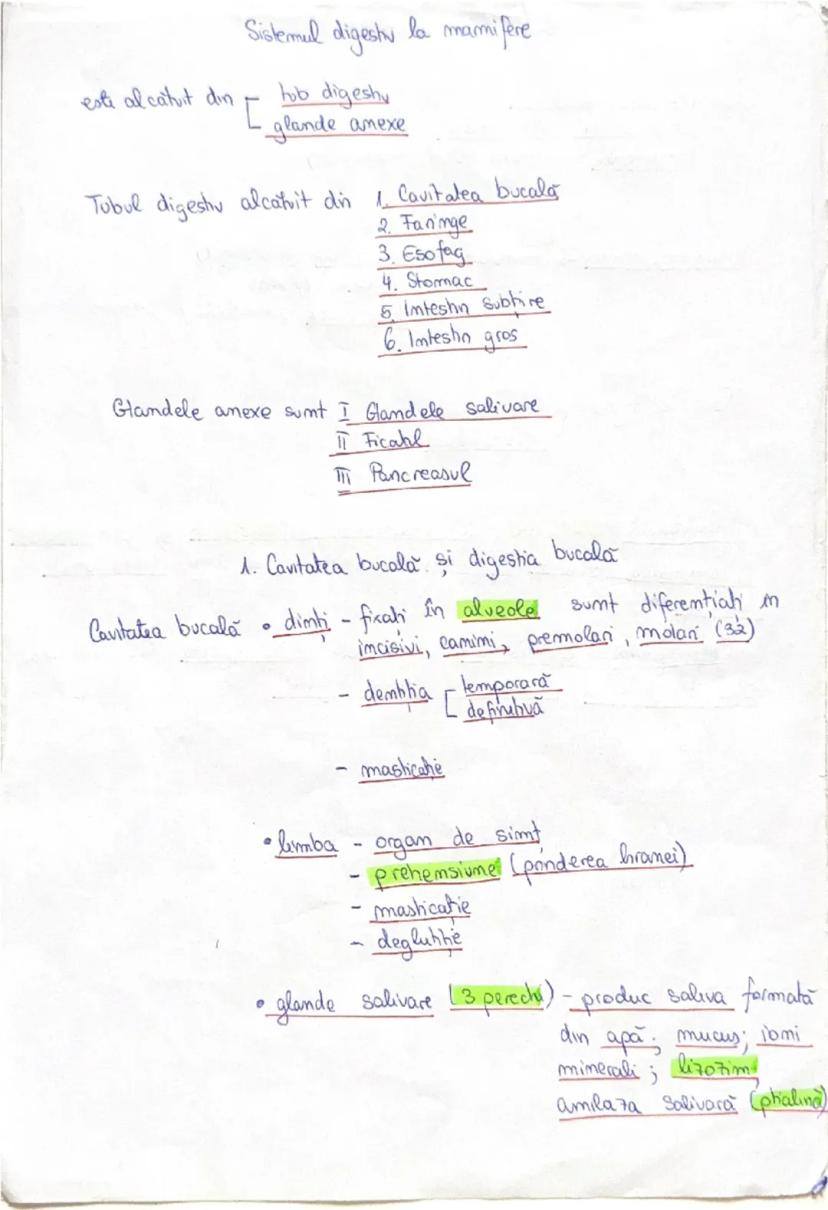 Sistemul digestiv la mamifere
este alcătuit din tub digestiv
glande anexe
Tubul digestiv alcătuit din 1. Cavitatea bucală
2. Faringe
3. Esofag
4. Stomac
5. Intestin subțire
6. Intestin gros
Glandele anexe sunt I Glandele salivare
II Ficatul
III Pancreasul
1. Cavitatea bucală și digestia bucală
Cavitatea bucală • dinți - fixați în alveole sunt diferențiați în
incisivi, canini, premolari, molari (32)
- dentiția temporară
definitivă
- masticație
• limba - organ de simț
- prehensiune (prinderea hranei)
- masticație
- deglutiție
• glande salivare (3 perechi) - produc saliva formată
din apă; mucus; ioni
minerali; lizozim
amilaza salivară (ptialină)